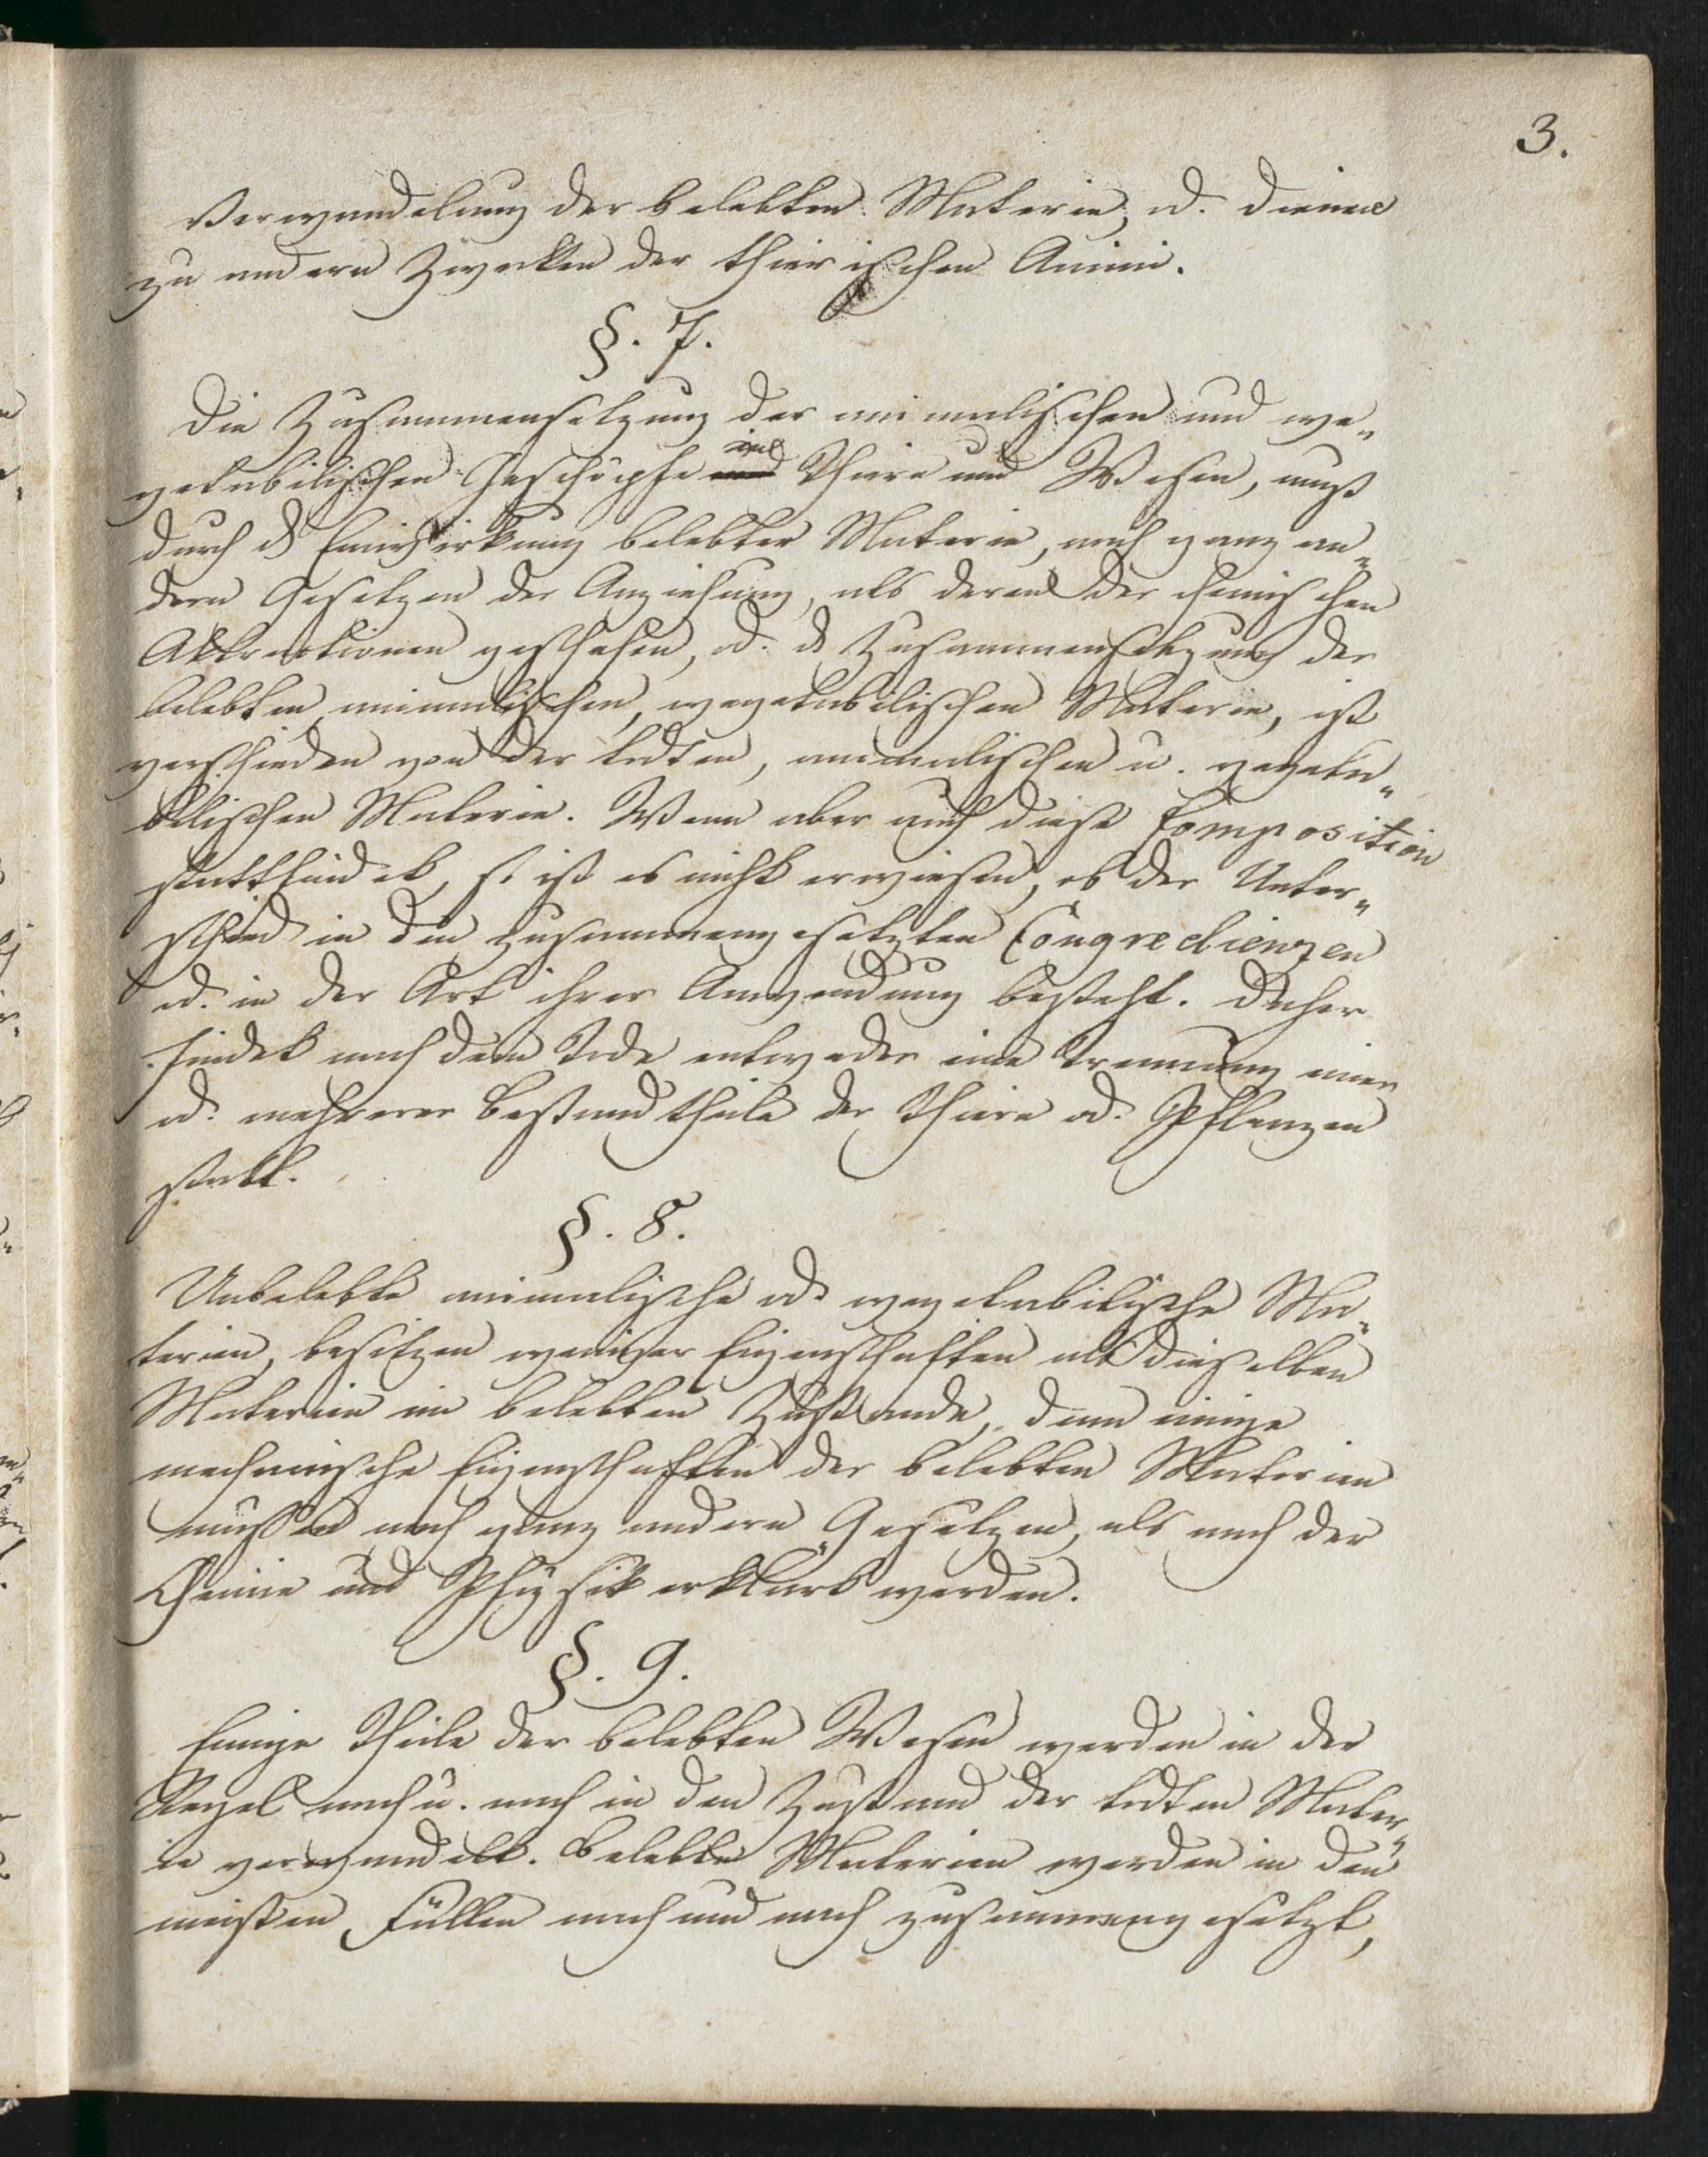 3.
Verwandelung der belebten Materie, od. dienen
zu andern Zwecken der thierischen
§. 7.
Die Zusammensetzung der animalischen und ve„
getabilischen Geschöpfe in Thiere und Wesen, muß
durch d Einwirkung belebter Materie, nach ganz an„
dern Gesetzen der Anziehung, als denen der chemischen
Attractionen geschehen, od. d Zusammensetzung der
belebten animalischen, vegetabilischen Materie, ist
verschieden von der todten, animalischen u. vegeta„
bilischen Materie. Wenn aber auch diese Composition
stattfindet, so ist es nicht erwiesen, ob der Unter„
schied in den zusammengesetzten Congredienzen
od. in der Art ihrer Anwendung besteht. Daher
findet nach dem Tode entweder eine Trennung eines
od. mehrerer Bestandtheile der Thiere od. Pflanzen
statt.
§. 8.
Unbelebte animalische od. vegetabilische Ma„
terien, besitzen weniger Eigenschaften als dieselben
Materien im belebten Zustande, denn einige
mechanische Eigenschaften der belebten Materien
mussen nach ganz andern Gesetzen, als nach der
Chemie und Physik erklärt werden.
§. 9.
Einige Theile der belebten Wesen werden in der
Regel nach u. nach in den Zustand der todten Mater„
ie verwandelt. Belebte Materien werden in den
meisten Fällen nach und nach zusammengesetzt,